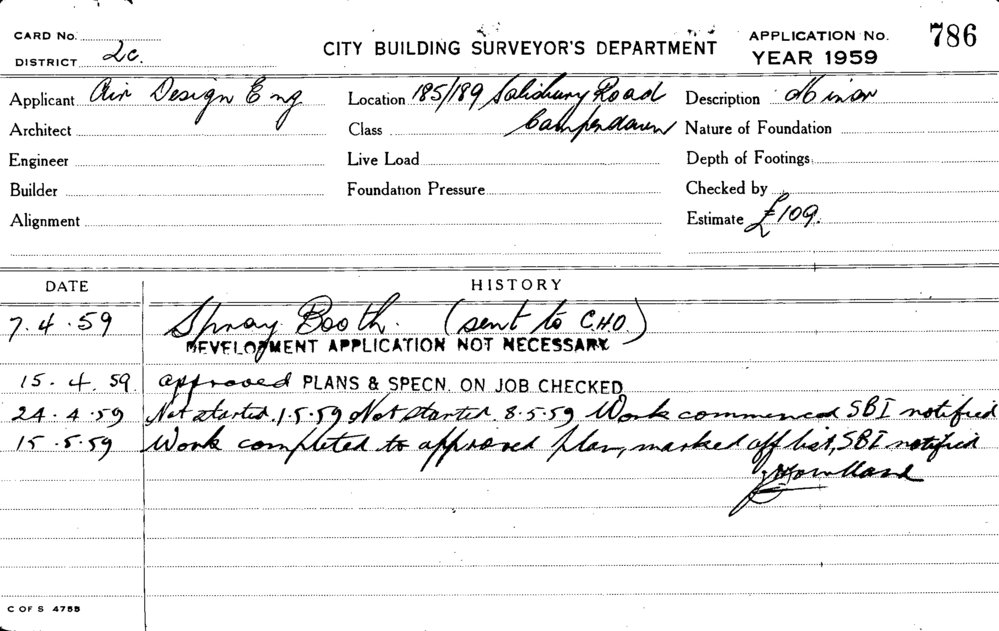 CARD No.
DISTRICT 2c.
CITY BUILDING SURVEYOR'S DEPARTMENT
APPLICATION No. 786
YEAR 1959
Applicant Air Design Eng Location 185/189 Salisbury Road Description Minor
Architect Class Camperdown Nature of Foundation
Engineer Live Load Depth of Footings
Builder Foundation Pressure Checked by
Alignment Estimate £109.
DATE HISTORY
7.4.59 Spray Booth. (sent to C.H.O)
DEVELOPMENT APPLICATION NOT NECESSARY
15.4.59. approved PLANS & SPECN. ON JOB CHECKED
24.4.59 Not started. 1.5.59 Not started. 8.5.59 Work commenced SBI notified
15.5.59 Work completed to approved plan, marked off list, SBI notified
C OF S 4755